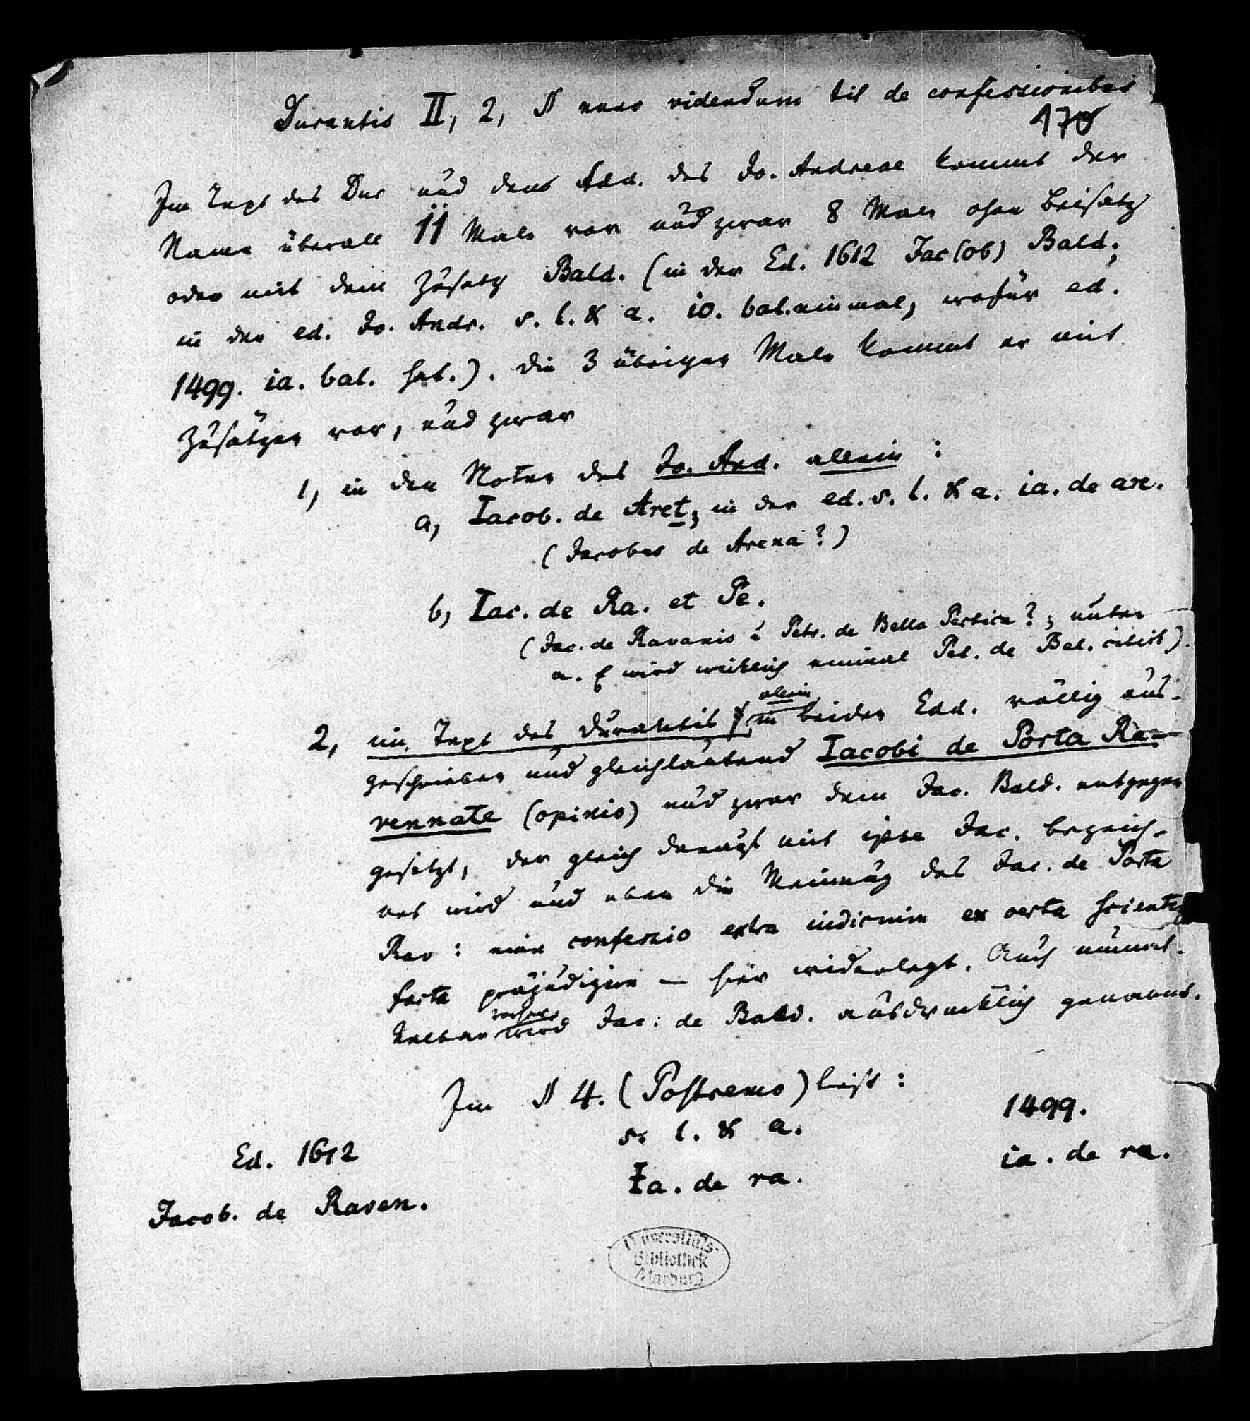 Durantis II, 2, § nunc videndum tit de confessionibus
170
Im Text des Dur und dens Add. des Jo. Andreae kommt der
Name überall 11 Male vor und zwar 8 Male ohne Beisatz
oder mit dem Zusatz Bald. (in der Ed. 1612 Jac(ob) Bald;
in der ed. Jo. Andr. s. l. & a. io. bal. einmal, wofür ed.
1499. ia. bal. hat.). Die 3 übrigen Male kommt er mit
Zusätzen vor, und zwar
1, in den Noten des Jo. And. allein :
a, Iacob. de Aret, in der ed. s. l. & a. ia. de are.
(Jacobus de Arena?)
b, Iac. de Ra. et Pe.
(Jac. de Ravanis u Petr. de Bella Pertica?; unter
a. E wird wirklich einmal Pet. de Bel. citirt).
2, im Text des Durantis allein in beiden Edd. völlig aus-
geschrieben und gleichlautend Iacobi de Porta Ra-
vennate (opinio) und zwar dem Jac. Bald. entgegen
gesetzt, der gleich darauf mit ipse Jac. bezeich-
net wird und eben die Meinung des Jac. de Porta
Rav : eine confessio extra iudicium ex certa scientia
facta präjudizire — hier widerlegt. Auch unmit-
telbar vorher wird Jac. de Bald. ausdrücklich genannt.
Im § 4. (Postremo) liest :
Ed. 1612 s. l. & a. 1499.
Jacob. de Raven. Ia. de ra. ia. de ra.
Universitäts-
Bibliothek
Marburg